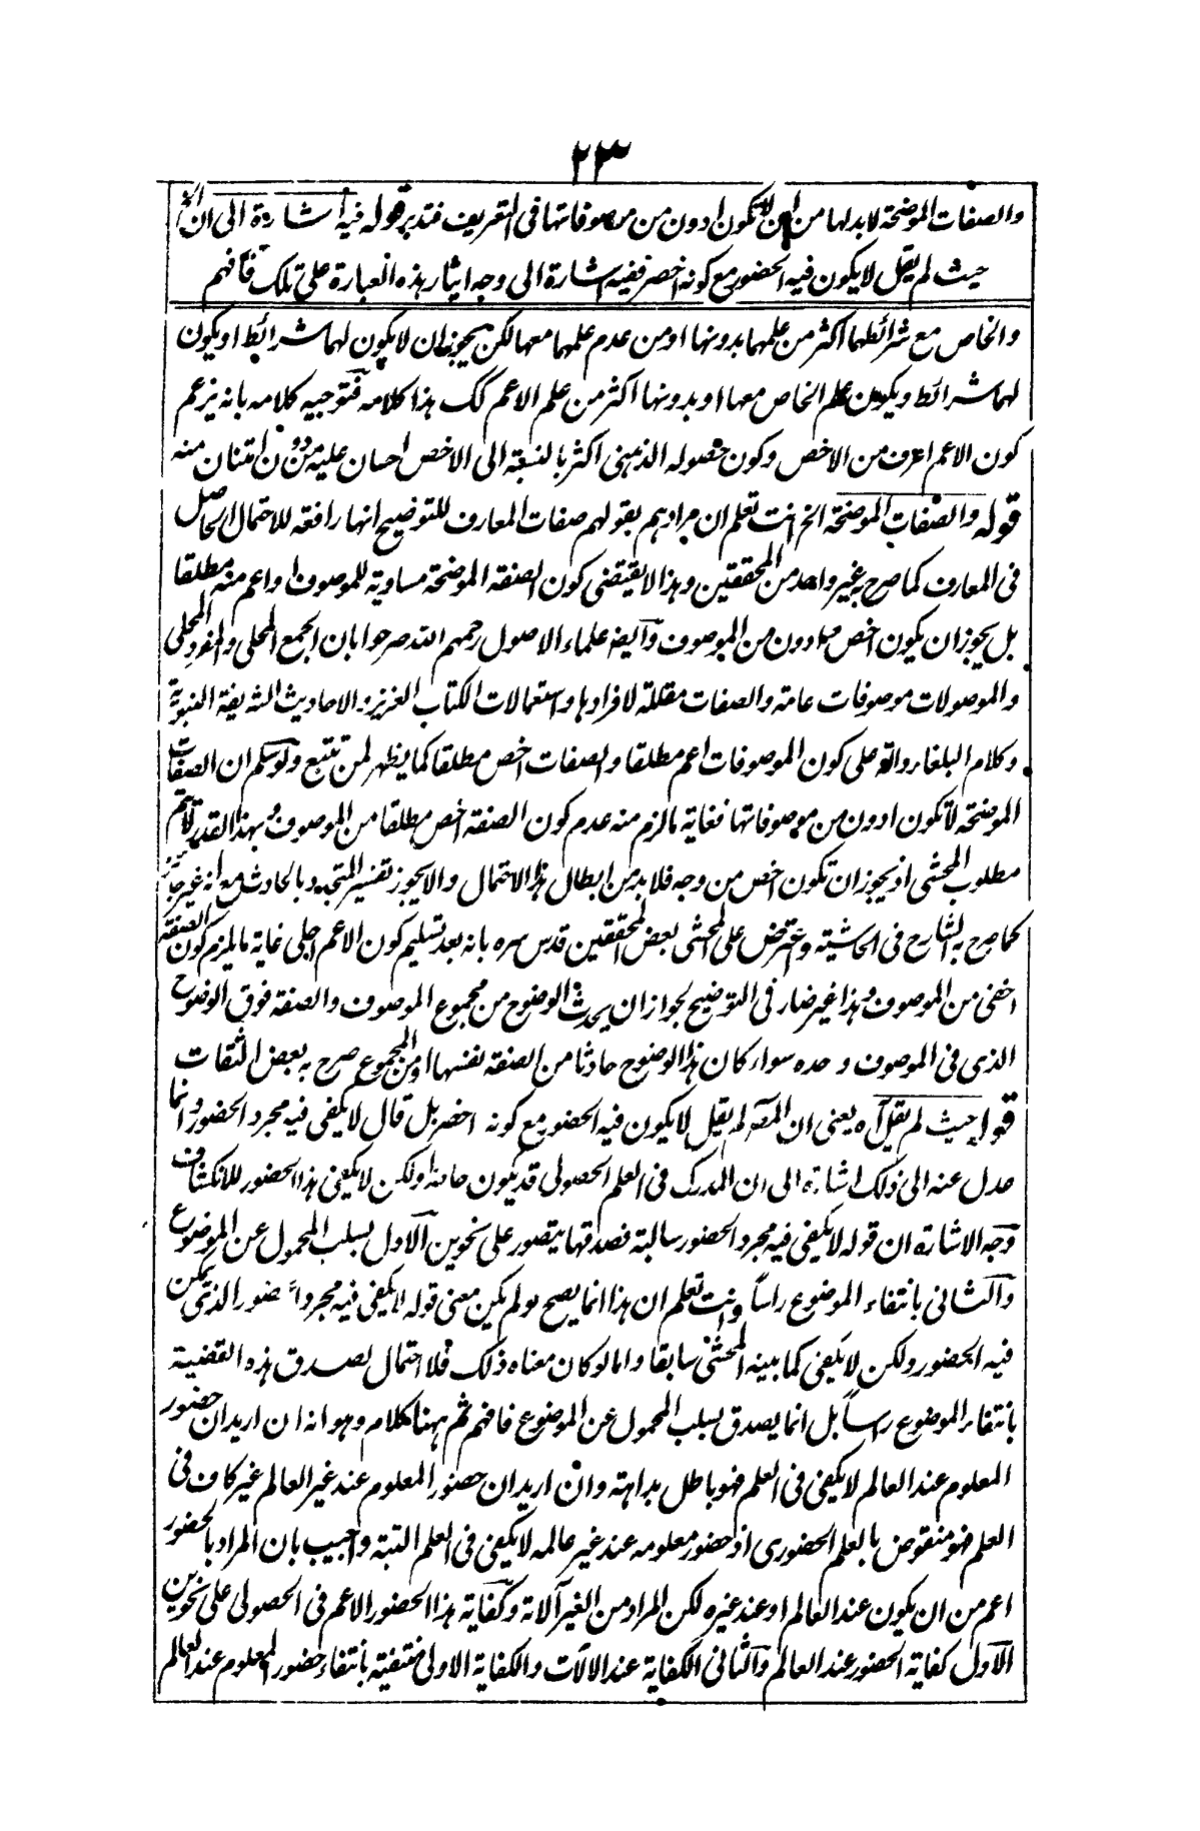 ٢٣
والصفات الموضحة لابد لها من ان لا تكون ادون من موصوفاتها فى التعريف فتدبر قوله فيه اشارة الى ان الخ
حيث لم يقل لا يكون فيه الحضور مع كونه اخصر ففيه اشارة الى وجه ايثار هذه العبارة على تلك فافهم
والخاص مع شرائطها اكثر من علمها بدونها او من عدم علمها معها لكن يجوز ان لا يكون لهما شرائط او يكون
لهما شرائط ويكون علم الخاص معها او بدونها اكثر من علم الاعم كك هذا كلامه فتوجيه كلامه بانه يزعم
كون الاعم اعرف من الاخص وكون حصوله الذهنى اكثر بالنسبة الى الاخص احسان عليه من دون امتنان منه
قوله والصفات الموضحة الخ انت تعلم ان مرادهم بقولهم صفات المعارف للتوضيح انها رافعة للاحتمال الحاصل
فى المعارف كما صرح به غير واحد من المحققين وهذا لا يقتضى كون الصفة الموضحة مساوية للموصوف او اعم منه مطلقا
بل يجوز ان يكون اخص وادون من الموصوف وايضا علماء الاصول رحمهم الله صرحوا بان الجمع المحلى والمفرد المحلى
والموصولات موصوفات عامة والصفات مقللة لافرادها واستعمالات الكتاب العزيز والاحاديث الشريفة النبوية
وكلام البلغاء دالة على كون الموصوفات اعم مطلقا والصفات اخص مطلقا كما يظهر لمن تتبع ولو سلم ان الصفات
الموضحة لا تكون ادون من موصوفاتها فغاية مالزم منه عدم كون الصفة اخص مطلقا من الموصوف وبهذا القدر لا يتم
مطلوب المحشى اذ يجوز ان تكون اخص من وجه فلا بد من ابطال هذا الاحتمال والا يجوز تفسير المتجدد بالحادث مع انه غير جائز
كما صرح به الشارح فى الحاشية واعترض على المحشى بعض المحققين قدس سره بانه بعد تسليم كون الاعم اجلى غاية ما يلزم كون الصفة
اخفى من الموصوف وهذا غير ضار فى التوضيح لجواز ان يحدث الوضوح من مجموع الموصوف والصفة فوق الوضوح
الذى فى الموصوف وحده سواء كان هذا الوضوح حادثا من الصفة نفسها او من المجموع صرح به بعض الثقات
قوله حيث لم يقل آه يعنى ان المصـ لم يقل لا يكون فيه الحضور مع كونه اخصر بل قال لا يكفى فيه مجرد الحضور وانما
عدل عنه الى ذلك اشارة الى ان المدرك فى العلم الحصولى قد يكون حاضرا ولكن لا يكفى هذا الحضور للانكشاف
وجه الاشارة ان قوله لا يكفى فيه مجرد الحضور سالبة فصدقها يتصور على نحوين الاول بسلب المحمول عن الموضوع
والثانى بانتفاء الموضوع راسا وانت تعلم ان هذا انما يصح لو لم يكن معنى قوله لا يكفى فيه مجرد الحضور الذى يمكن
فيه الحضور ولكن لا يكفى كما بينه المحشى سابقا واما لو كان معناه ذلك فلا احتمال لصدق هذه القضية
بانتفاء الموضوع راسا بل انما يصدق بسلب المحمول عن الموضوع فافهم ثم ههنا كلام وهو انه ان اريد ان حضور
المعلوم عند العالم لا يكفى فى العلم فهو باطل بداهة وان اريد ان حضور المعلوم عند غير العالم غير كاف فى
العلم فهو منقوض بالعلم الحضورى اذ حضور معلومه عند غير عالمه لا يكفى فى العلم البتة واجيب بان المراد بالحضور
اعم من ان يكون عند العالم او عند غيره لكن المراد من الغير آلاته وكفاية هذا الحضور الاعم فى الحصولى على نحوين
الاول كفاية الحضور عند العالم والثانى الكفاية عند الآلات والكفاية الاولى منتفية بانتفاء حضور المعلوم عند العالم